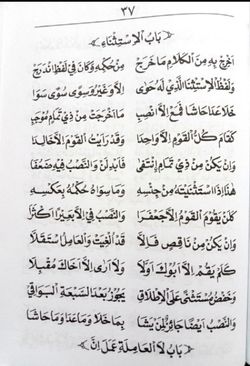 ٣٧
﴿ بَابُ الْاِسْتِثْنَاءِ ﴾
اَخْرِجْ بِهِ مِنَ الْكَلَامِ مَا خَرَجَ مِنْ حُكْمِهِ وَكَانَ فِي لَفْظٍ انْدَرَجْ
وَلَفْظُ الْاِسْتِثْنَا الَّذِي لَهُ حَوَى اِلَّا وَغَيْرٌ وَسِوًى سُوًى سَوَا
خَلَا عَدَا حَاشَا فَمَعْ اِلَّا انْصِبِ مَا اَخْرَجَتْ مِنْ ذِي تَمَامٍ مُوْجَبِ
كَقَامَ كُلُّ الْقَوْمِ اِلَّا وَاحِدَا وَقَدْ رَأَيْتُ الْقَوْمَ اِلَّا خَالِدَا
وَاِنْ يَكُنْ مِنْ ذِي تَمَامٍ اِنْتَفَى فَاَبْدِلَنْ وَالنَّصْبُ فِيْهِ ضَعِّفَا
هٰذَا اِذَا اسْتَثْنَيْتَهُ مِنْ جِنْسِهِ وَمَا سِوَاهُ حُكْمُهُ بِعَكْسِهِ
كَلَنْ يَقُوْمَ الْقَوْمُ اِلَّا جَعْفَرَا وَالنَّصْبُ فِي اِلَّا بَعِيْرًا اَكْثَرَا
وَاِنْ يَكُنْ مِنْ نَاقِصٍ فَاِلَّا قَدْ اُلْغِيَتْ وَالْعَامِلُ اسْتَقَلَّا
كَلَمْ يَقُمْ اِلَّا اَبُوْكَ اَوَّلَا وَلَا اَرَى اِلَّا اَخَاكَ مُقْبِلَا
وَخَفْضُ مُسْتَثْنًى عَلَى الْاِطْلَاقِ يَجُوْزُ بَعْدَ السَّبْعَةِ الْبَوَاقِي
وَالنَّصْبُ اَيْضًا جَائِزٌ لِمَنْ يَشَا بِمَا خَلَا وَمَا عَدَا وَمَا حَاشَا
﴿ بَابُ لَا الْعَامِلَةِ عَمَلَ اِنَّ ﴾